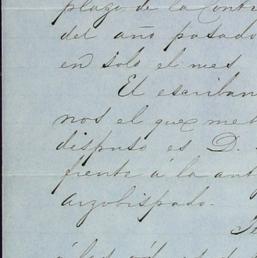 plazo de la Contr
del año pasado
en solo el mes
El escriban
nos el que me
dispuso es D.
frente á la ant
Arzobispado.